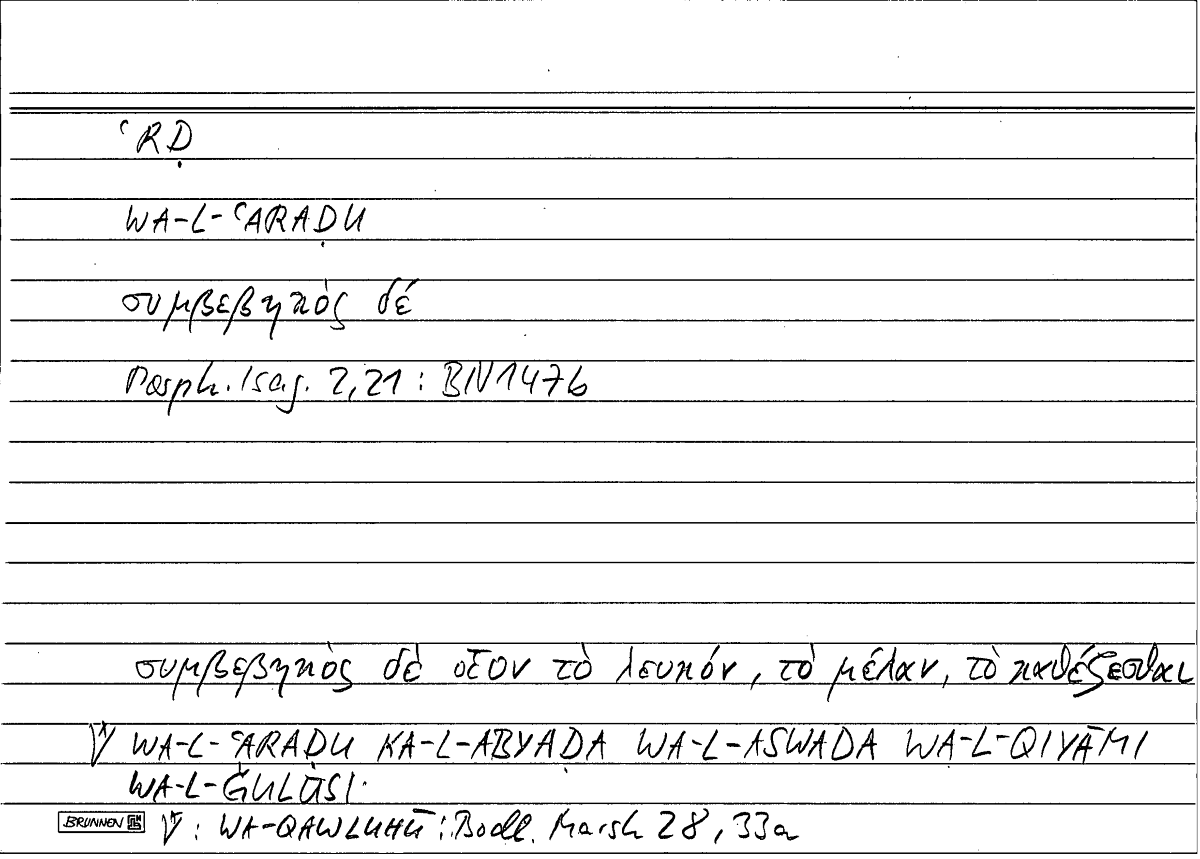 ʿRḌ
WA-L-ʿARAḌU
συμβεβηκὸς δέ
Porph. Isag. 2,21 : BN 147b
συμβεβηκὸς δὲ οἷον τὸ λευκόν, τὸ μέλαν, τὸ καθέζεσθαι
WA-L-ʿARAḌU KA-L-ABYAḌA WA-L-ASWADA WA-L-QIYĀMI
WA-L-ǦULŪSI
BRUNNEN : WA-QAWLUHŪ : Bodl. Marsh 28, 33a